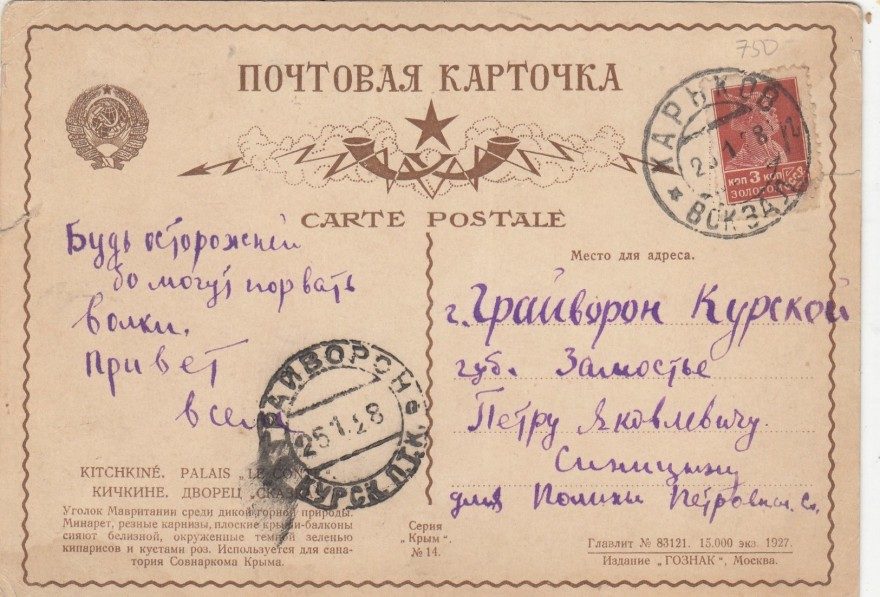 750
ПОЧТОВАЯ КАРТОЧКА
ХАРЬКОВ
ВОКЗАЛ
КОП 3 КОП
ЗОЛОТОМ
CARTE POSTALE
Будь осторожней
бо могут порвать
волки.
Привет
всем
Место для адреса.
г. Грайворон Курской
губ. Замостье
Петру Яковлевичу
Синицыну
для Полины Петровны С.
ГРАЙВОРОН
25 1 28
КУРСК. П.Т.К.
KITCHKINÉ. PALAIS „LE
КИЧКИНЕ. ДВОРЕЦ „СКАЗ
Уголок Мавритании среди дикой горной природы.
Минарет, резные карнизы, плоские крыши-балконы
сияют белизной, окруженные темной зеленью
кипарисов и кустами роз. Используется для сана-
тория Совнаркома Крыма.
Серия
„Крым".
№ 14.
Главлит № 83121. 15.000 экз. 1927.
Издание „ГОЗНАК", Москва.